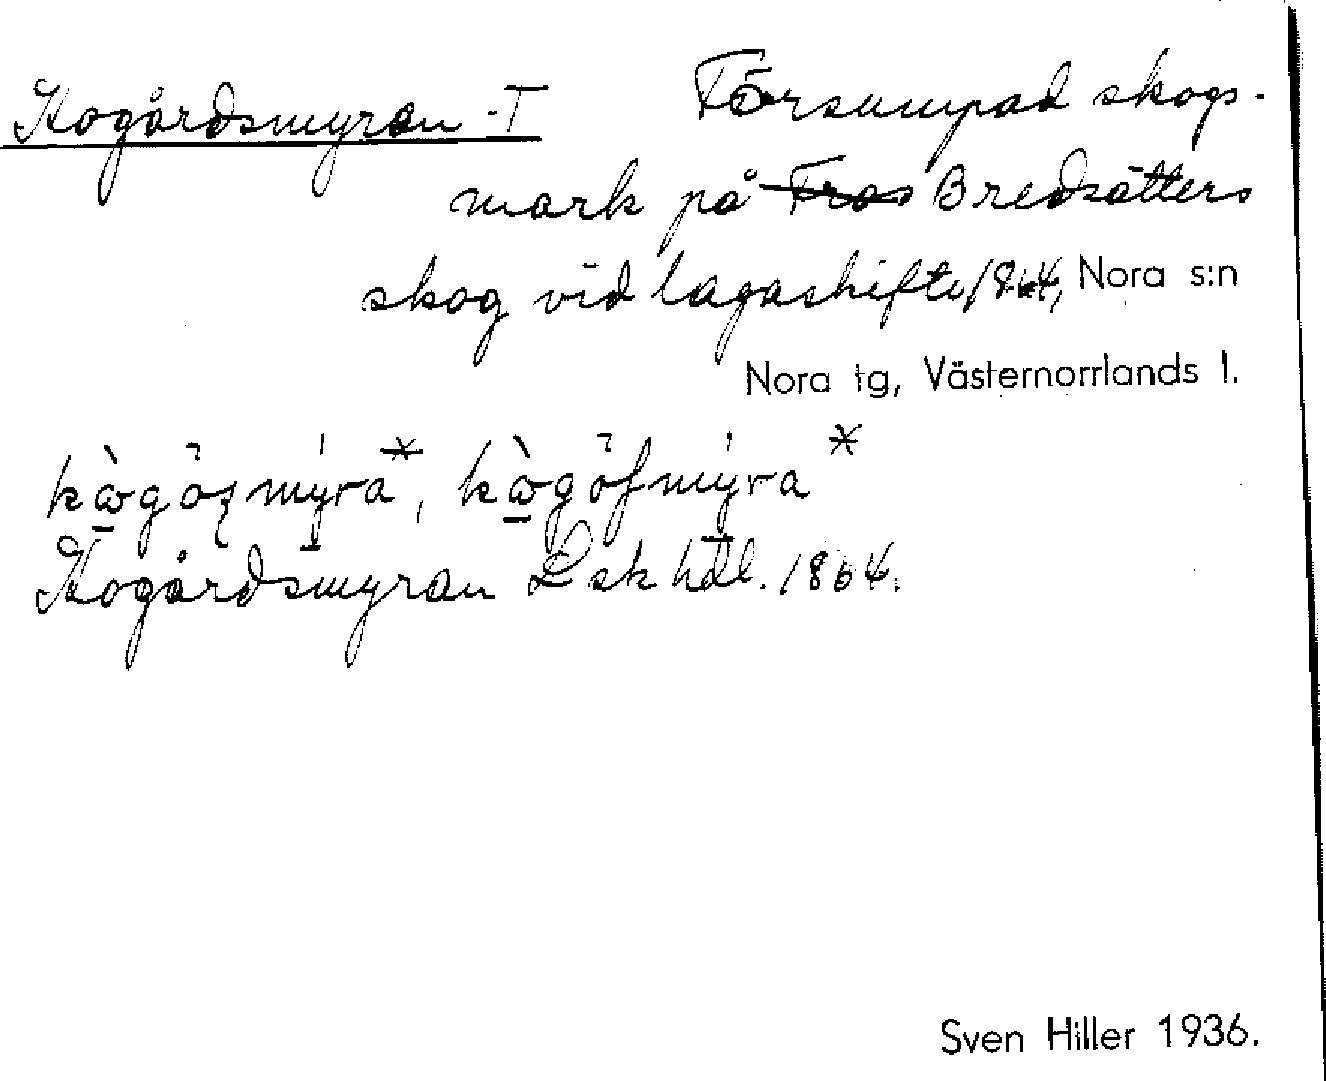 Kogårdsmyran -T Försumpad skogs-
mark på Fros Bredsätters
skog vid lagashifte 1864, Nora s:n
Nora tg, Västernorrlands l.
Kogårdsmyran Lsk hdl. 1864.
Sven Hiller 1936.